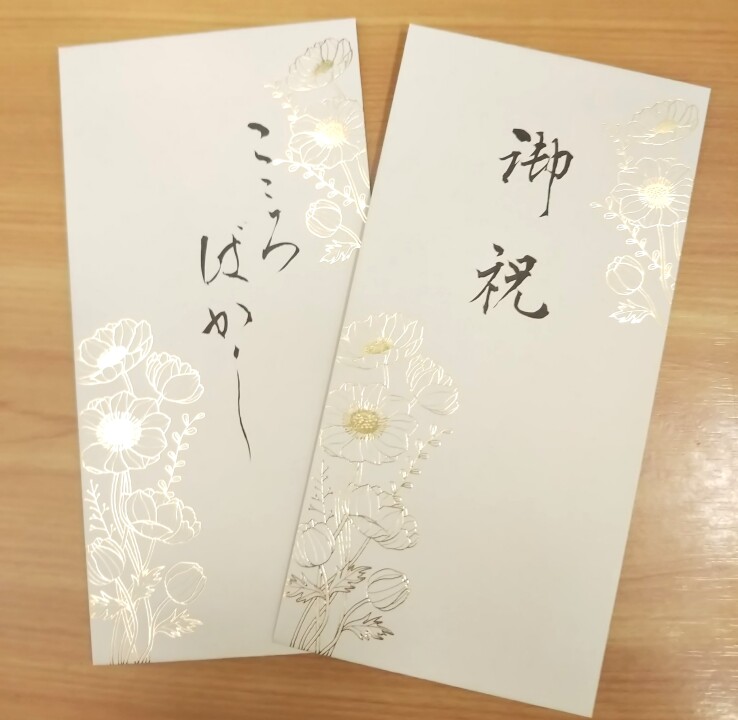 こころ
ばかり
御祝